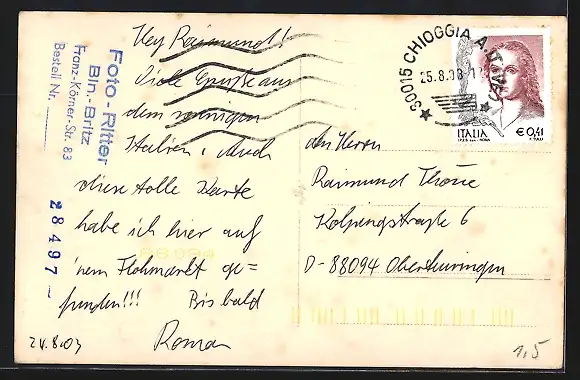 Foto-Ritter
Bln.-Britz
Franz-Körner-Str. 83
Bestell Nr.
28497
Hey Raimund!
Viele Grüße aus
dem sonnigen
Italien, Auch
diese tolle Karte
habe ich hier auf
'nem Flohmarkt ge=
funden!!! Bis bald
Roman
24.8.03
30015 CHIOGGIA
25.8.03
ITALIA
€ 0,41
den Herrn
Raimund
Kolpingstraße 6
D-88094 Oberteuringen
88094
1,5